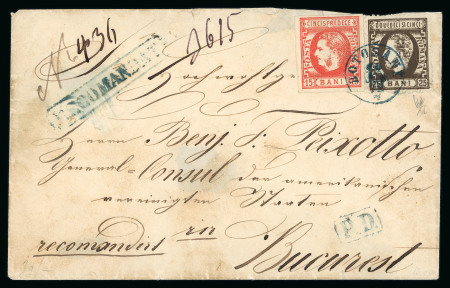 No 436
2615
RECOMANDAT
CINCISPREDECE
15 BANI
DOUEDECISICINCI
25 BANI 25
BOTOSANI
Hochwolgeb
Herrn Benj. F. Peixotto
General-Consul der amerikanischen
vereinigten Staaten
in
recomandirt
Bucurest
P.D.